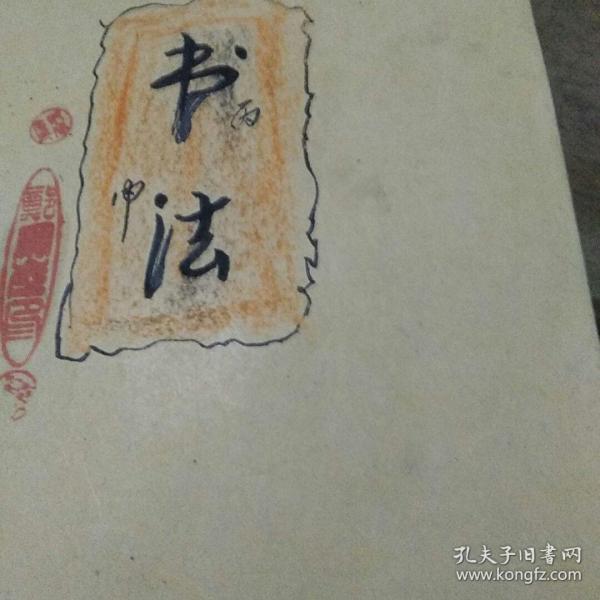 书法
丙
申
孔夫子旧书网
www.kongfz.com